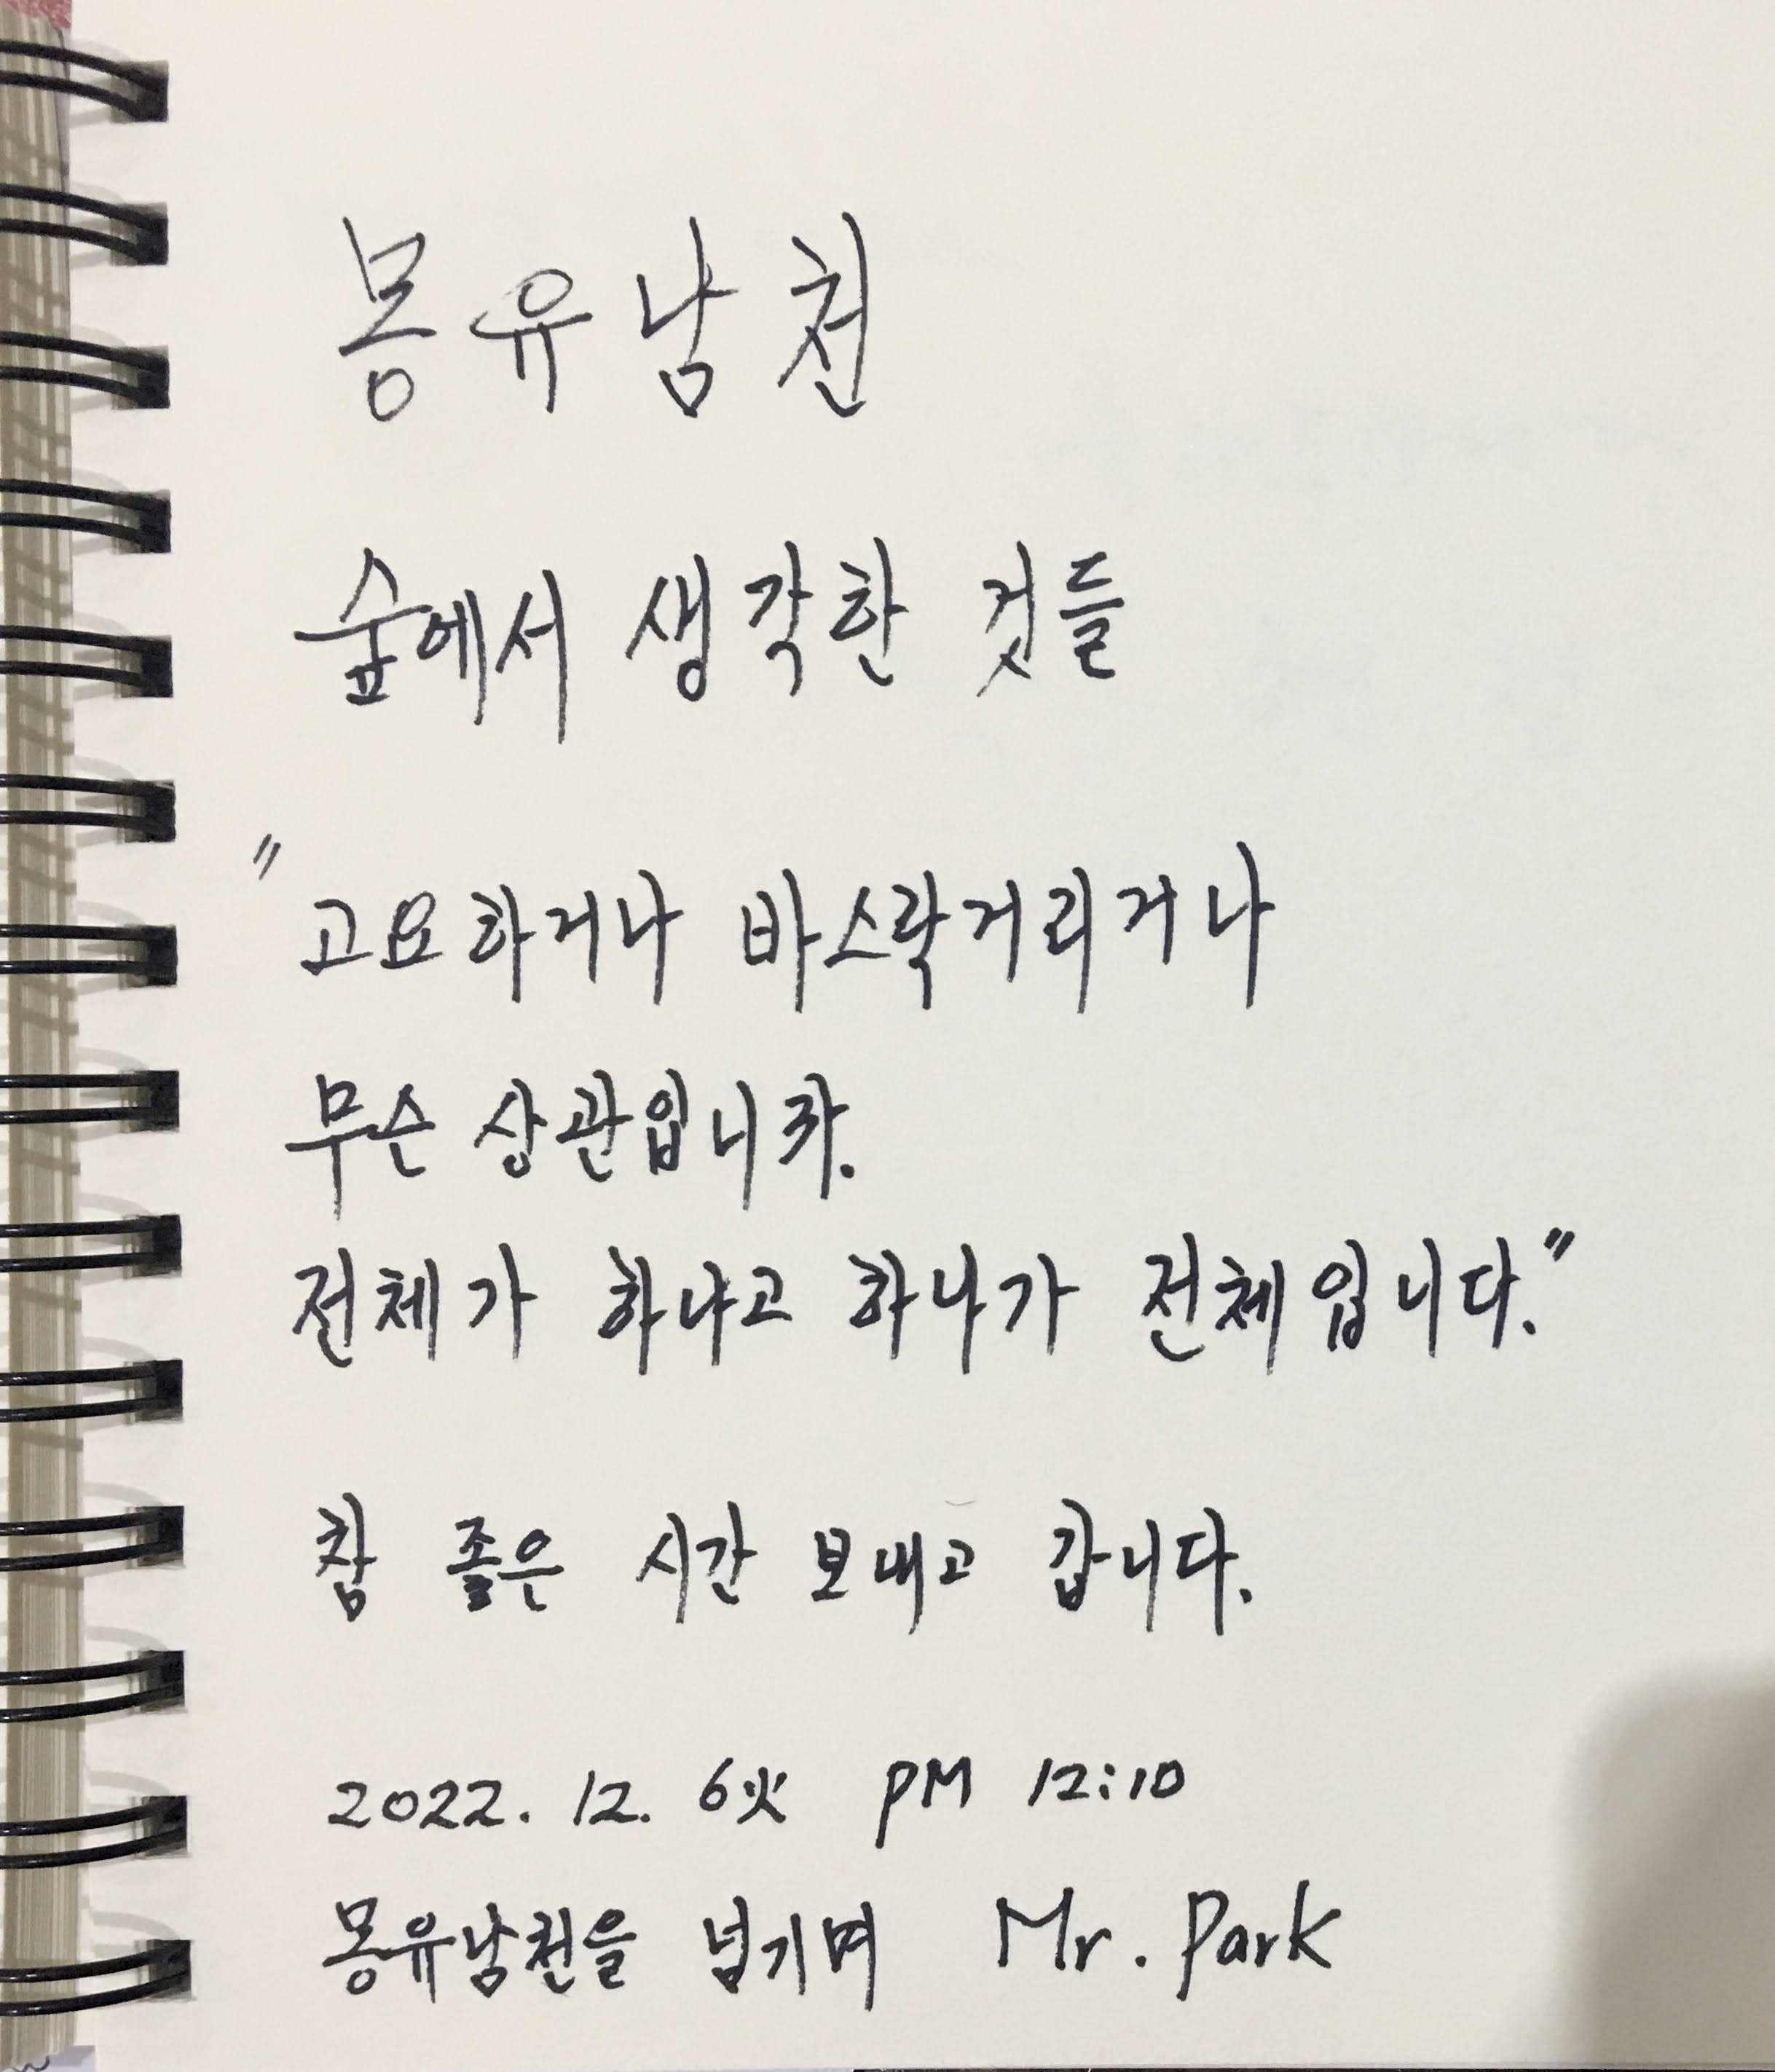 몽유남천
숲에서 생각한 것들
"고요하거나 바스락거리거나
무슨 상관입니까.
전체가 하나고 하나가 전체입니다."
참 좋은 시간 보내고 갑니다.
2022. 12. 6火 PM 12:10
몽유남천을 넘기며 Mr. Park